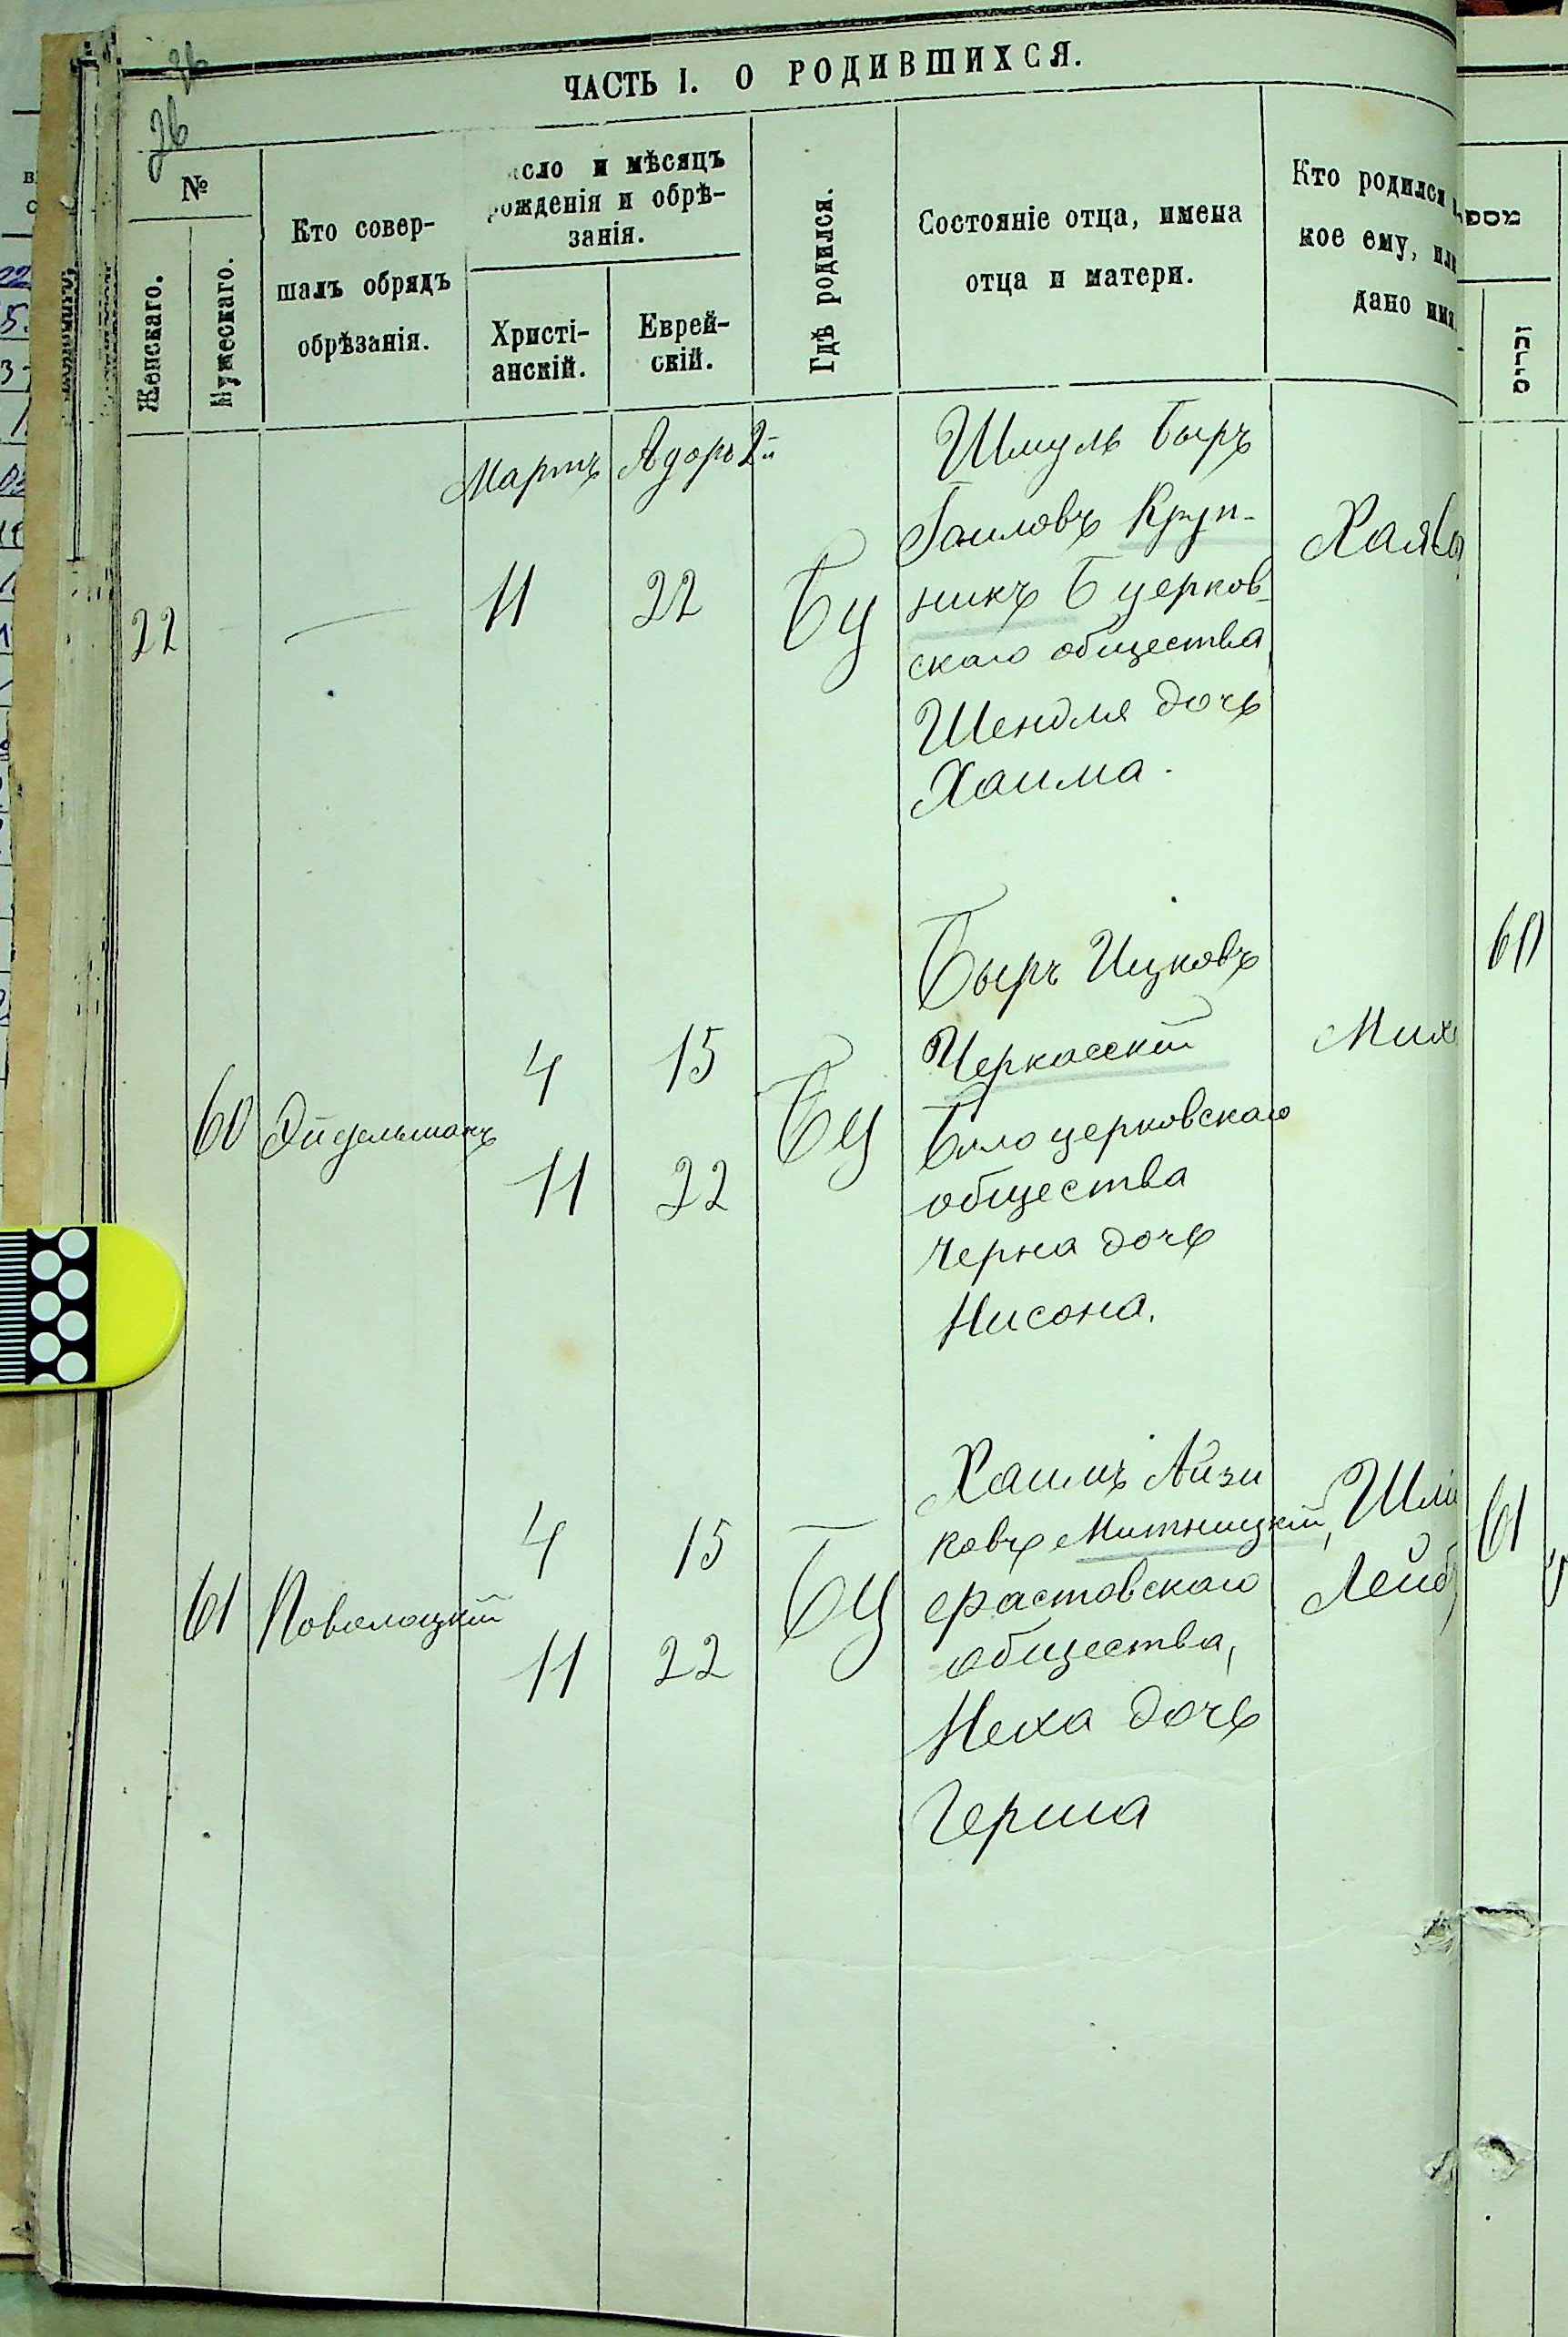 ЧАСТЬ I. О РОДИВШИХСЯ.
26
№
Женскаго.
Мужескаго.
Кто совер-
шалъ обрядъ
обрѣзанія.
сло и мѣсяцъ
рожденія и обрѣ-
занія.
Христі-
анскій.
Еврей-
скій.
Гдѣ родился.
Состояніе отца, имена
отца и матери.
Кто родился
кое ему, или
дано имя.
Мартъ Адоръ 2й
22 — 11 22 Бц
Шмуль Беръ
Круп-
никъ Бцерков-
скаго общества
Шендля дочь
Хаима.
Хая
60 Эйдельманъ
4 15
11 22
Бц
Беръ Ицковъ
Черкасскій
Бѣлоцерковскаго
общества
Черна дочь
Нисона.
Мих
61 Поволоцкій
4 15
11 22
Бц
Хаимъ Айзи
ковъ Митницкій,
фастовскаго
общества,
Неха дочь
Герша
Лейб
מספ
זכרים
60
61